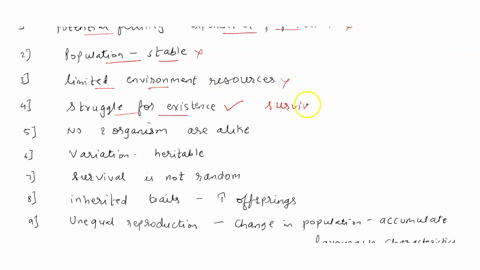 Potential
2] Population - stable x
3] limited environment resources x
4] struggle for existence ✓ surviv
5] No 2 organism are alike
6] Variation - heritable
7] survival is not random
8] inherited traits - ↑ offsprings
9] Unequal reproduction - change in population - accumulate
favourable characteristics